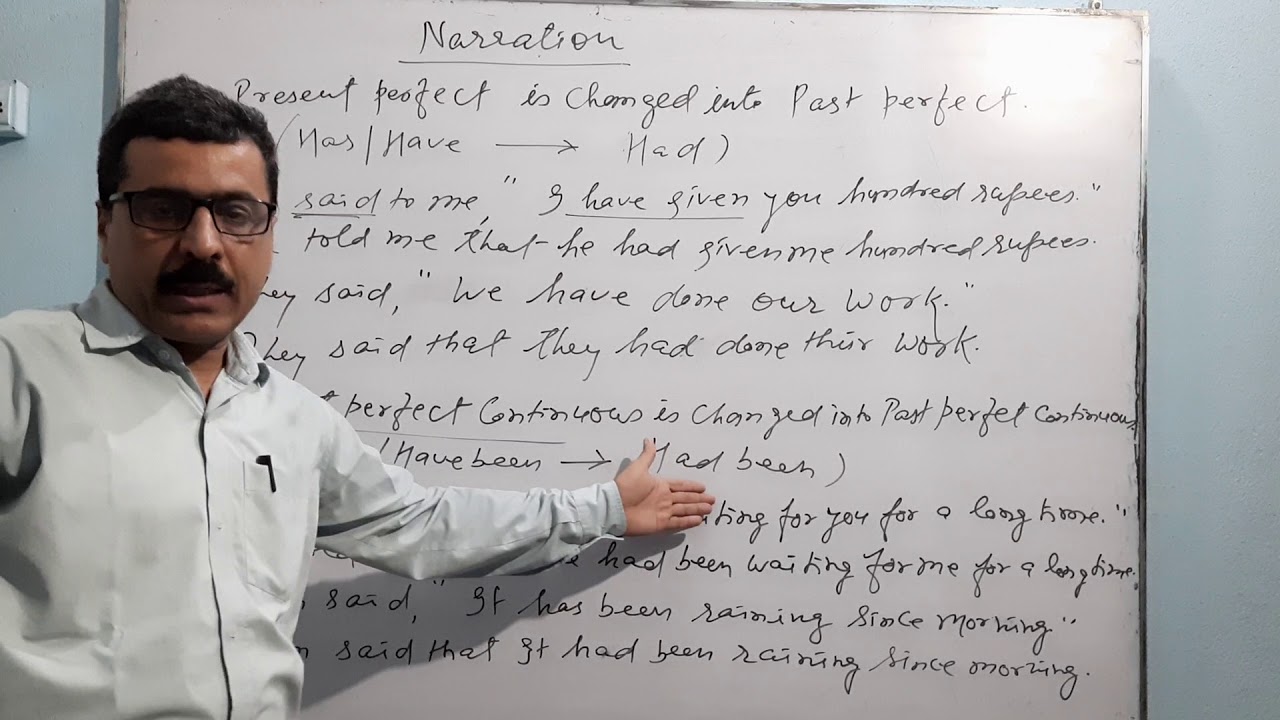 Narration
Present perfect is changed into Past perfect.
(Has/Have → Had)
said to me, "I have given you hundred rupees."
told me that he had given me hundred rupees.
They said, "We have done our work."
They said that they had done their work.
perfect Continuous is changed into Past perfet continuous
/Have been → Had been)
for you for a long time."
had been waiting for me for a long time.
said, "It has been raining since morning"
said that It had been raining since morning.